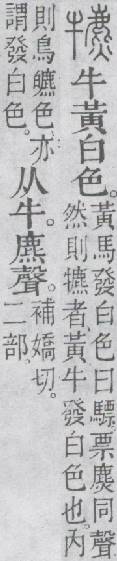 犥 牛黃白色。
黃馬發白色曰驃。票麃同聲。
然則犥者。黃牛發白色也。內
則鳥皫色。亦
謂發白色。
从牛。麃聲。
補嬌切。
二部。